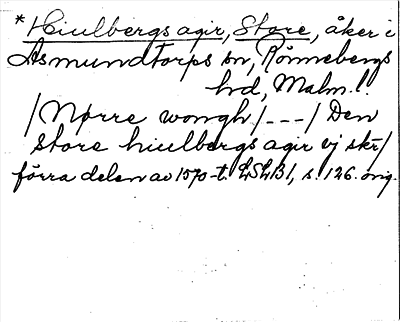 * Hiulbergs agir, Store, åker i
Asmundtorps sn, Rönnebergs
hd, Malm. l.
/Nørre wongh/---/ Den
store hiulbergs agir vj skr/
förra delen av 1570-t. LSLB1, s. 126. orig.